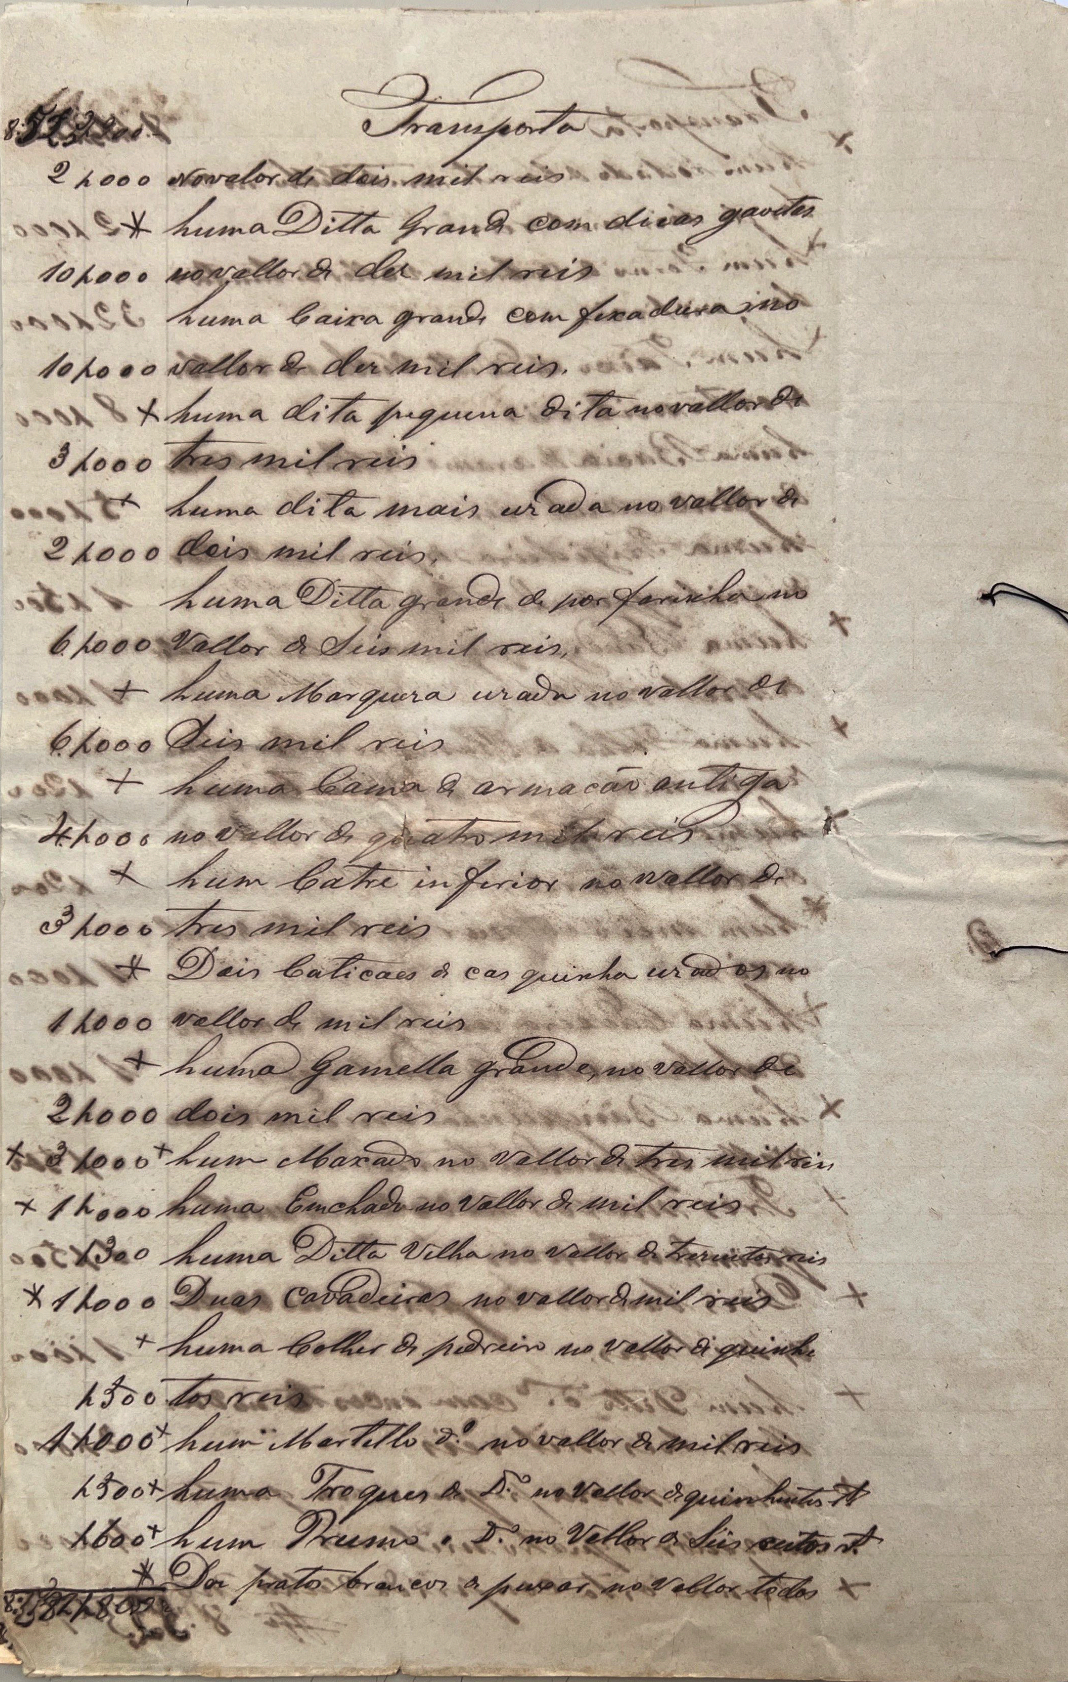 Transporta
2$000 no valor de dois mil reis
huma Ditta Grande com duas gavetas
10$000 no vallor de dez mil reis
huma Caixa grande com fexadura, no
10$000 vallor de dez mil reis.
huma dita piquena dita no vallor de
3$000 tres mil reis
huma dita mais uzada no vallor de
2$000 dois mil reis,
huma Ditta grande de por farinha no
6$000 Vallor de Seis mil reis,
huma Marqueza uzada no vallor de
6$000 Seis mil reis
huma Cama de armação antiga
4$000 no vallor de quatro mil reis
hum Catre inferior no vallor de
3$000 tres mil reis
Dois Catiçaes de casquinha uzados no
1$000 vallor de mil reis
huma Gamella grande, no vallor de
2$000 dois mil reis
3$000 hum Maxado no Vallor de tres mil reis
1$000 huma Emchada no Vallor de mil reis
$300 huma Ditta Velha no vallor de trezentos reis
1$000 Duas Cavadeiras no vallor de mil reis
huma Colher de pedreiro no vallor de quinhe
$500 tos reis
1$000 hum Martello d.º no vallor de mil reis
$500 huma Troques de D.º no Vallor de quinhentos rs
$600 hum Prumo D.º no Vallor de Seis centos rs.
Doz pratos brancos de puxar no vallor todos